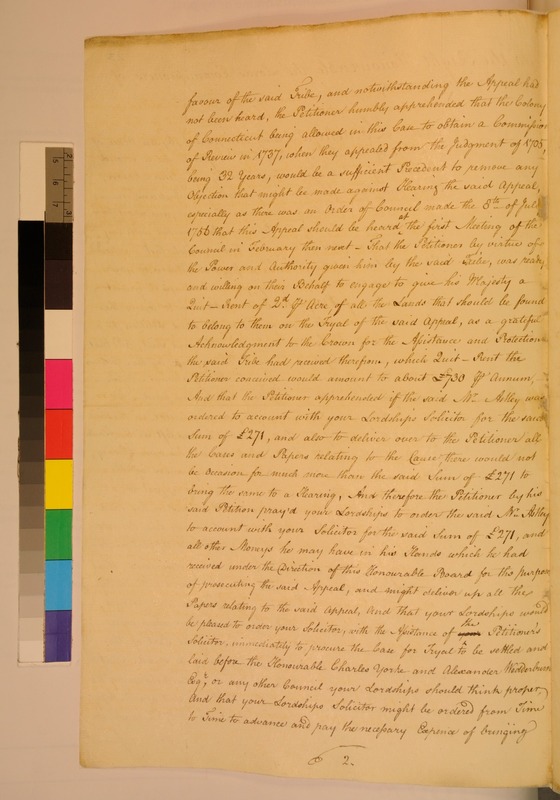 favour of the said Tribe, and notwithstanding the Appeal had
not been heard, the Petitioner humbly apprehended that the Colony
of Connecticut being allowed in this Case to obtain a Commission
of Review in 1737, when they appealed from the Judgment of 1705,
being 32 Years, would be a sufficient Precedent to remove any
Objection that might be made against Hearing the said Appeal,
especially as there was an Order of Council made the 8th of July
1756 that this Appeal should be heard at the first Meeting of the
Council in February then next – That the Petitioner by virtue of
the Power and Authority given him by the said Tribe, was ready
and willing on their Behalf to engage to give his Majesty a
Quit-Rent of 2d. ⅌ Acre, of all the Lands that should be found
to belong to them on the Tryal of the said Appeal, as a grateful
Acknowledgment to the Crown for the Assistance and Protection
the said Tribe had received therefrom, which Quit-Rent the
Petitioner conceived would amount to about £730 ⅌ Annum,
And that the Petitioner apprehended if the said Mr. Astley was
ordered to account with your Lordships Solicitor for the said
Sum of £271, and also to deliver over to the Petitioner all
the Cases and Papers relating to the Cause there would not
be Occasion for much more than the said Sum of £271 to
bring the same to a Hearing, And therefore the Petitioner by his
said Petition pray'd your Lordships to order the said Mr. Astley
to account with your Solicitor for the said Sum of £271, and
all other Moneys he may have in his Hands which he had
received under the Direction of this Honourable Board for the purpose
of prosecuting the said Appeal, and might deliver up all the
Papers relating to the said Appeal, And that your Lordships would
be pleased to order your Solicitor, with the Assistance of the Petitioner's
Solicitor, immediately to procure the Case for Tryal to be settled and
laid before the Honourable Charles Yorke and Alexander Wedderburn
Esqr., or any other Council your Lordships should think proper,
And that your Lordships Solicitor might be ordered from Time
to Time to advance and pay the necessary Expence of bringing
2.